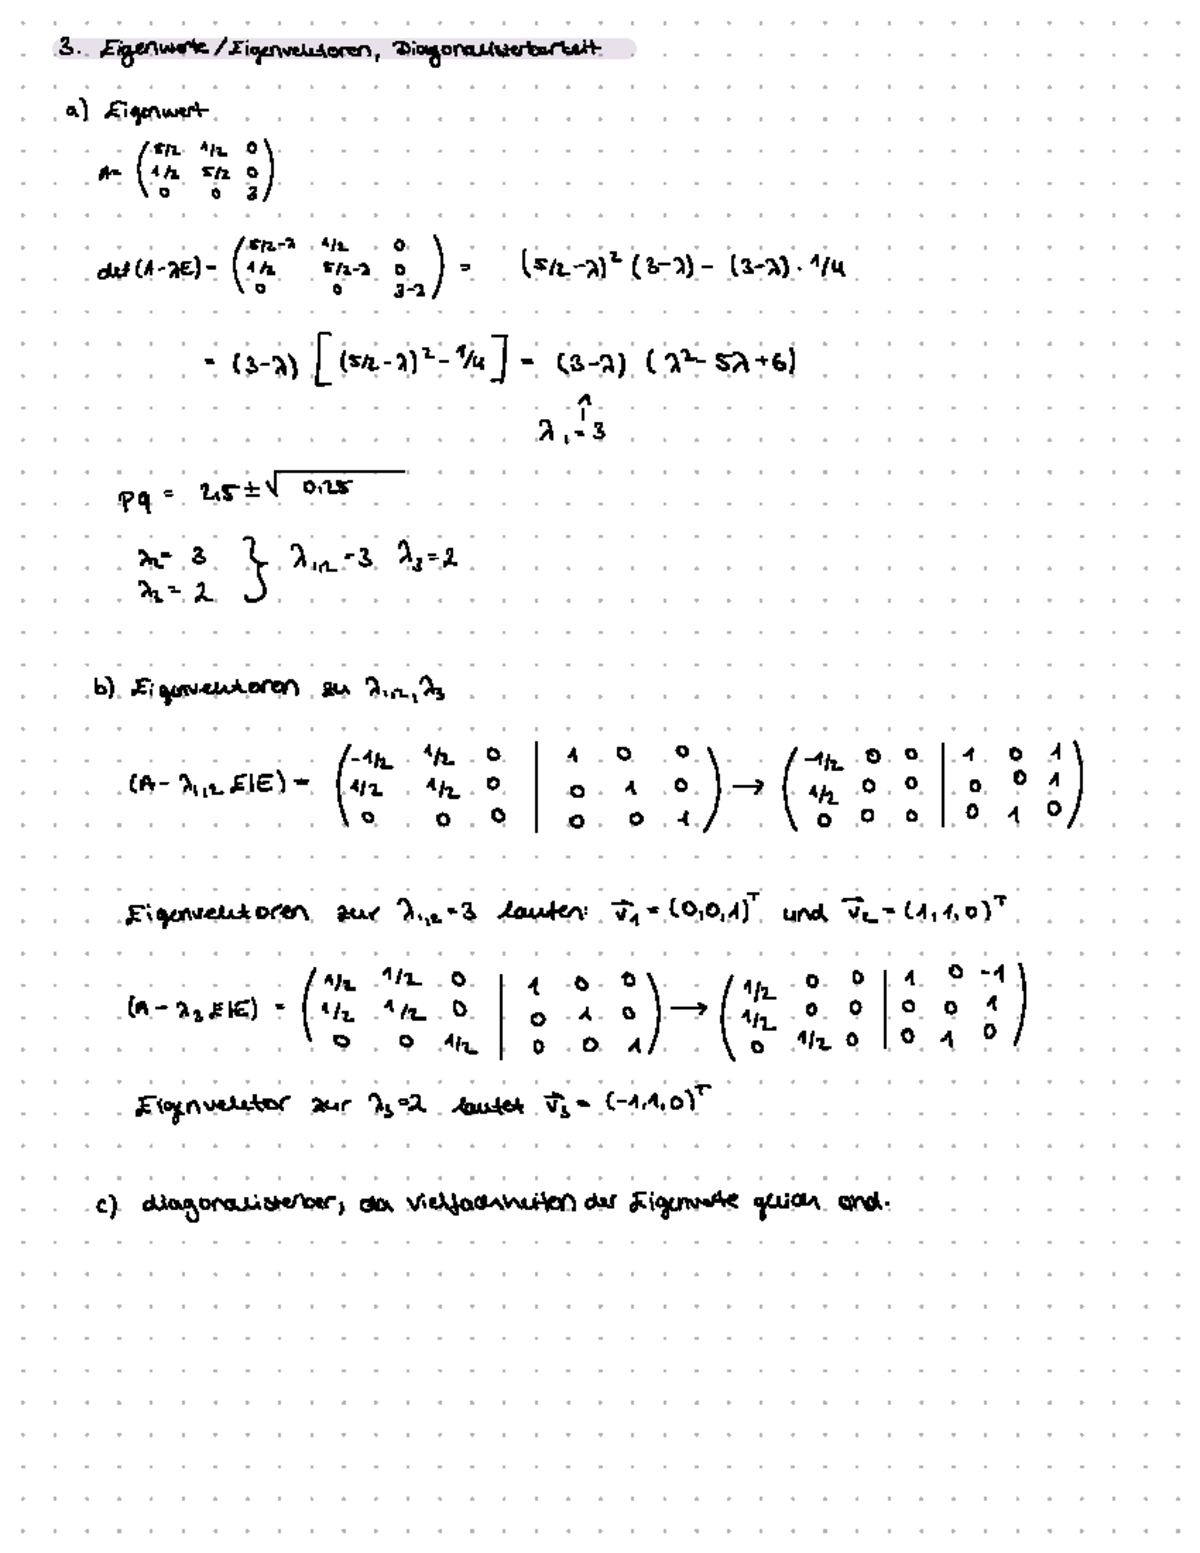 3. Eigenwerte/Eigenvektoren, Diagonalisierbarkeit
a) Eigenwert
A= ( 5/2 1/2 0
1/2 5/2 0
0 0 3 )
det(A-λE) = ( 5/2-λ 1/2 0
1/2 5/2-λ 0
0 0 3-λ ) = (5/2-λ)² (3-λ) - (3-λ) · 1/4
= (3-λ) [ (5/2-λ)² - 1/4 ] = (3-λ) (λ²-5λ+6)
↑
λ₁=3
pq = 2,5 ± √0,25
λ₂= 3 } λ₁,₂ = 3 λ₃ = 2
λ₂ = 2
b) Eigenvektoren zu λ₁,₂, λ₃
(A - λ₁,₂ E|E) = ( -1/2 1/2 0 | 1 0 0
1/2 1/2 0 | 0 1 0
0 0 0 | 0 0 1 ) → ( -1/2 0 0 | 1 0 1
1/2 0 0 | 0 0 1
0 0 0 | 0 1 0 )
Eigenvektoren zur λ₁,₂=3 lauten: v⃗₁ = (0,0,1)ᵀ und v⃗₂ = (1,1,0)ᵀ
(A - λ₃ E|E) = ( 1/2 1/2 0 | 1 0 0
1/2 1/2 0 | 0 1 0
0 0 1/2 | 0 0 1 ) → ( 1/2 0 0 | 1 0 -1
1/2 0 0 | 0 0 1
0 1/2 0 | 0 1 0 )
Eigenvektor zur λ₃=2 lautet v⃗₃ = (-1,1,0)ᵀ
c) diagonalisierbar, da Vielfachheiten der Eigenwerte gleich sind.